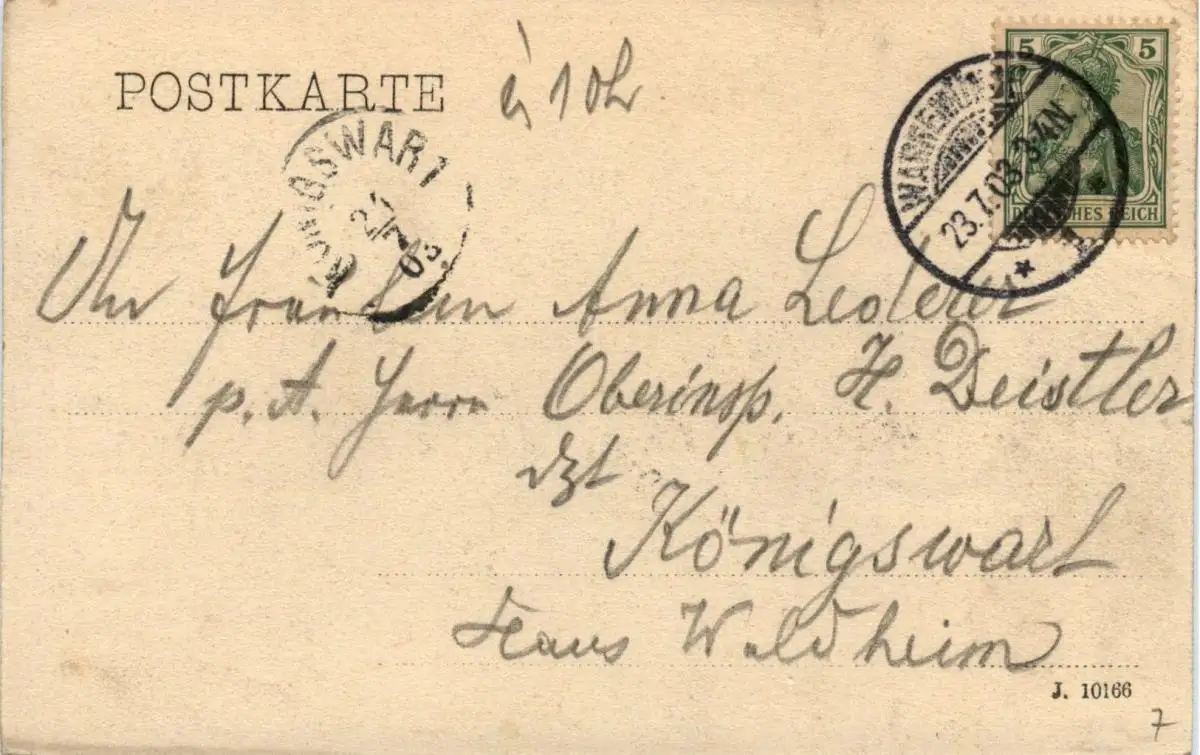 POSTKARTE
à 10h
5 5
DEUTSCHES REICH
WARNEMÜNDE
23.7.03. 3-4N.
KÖNIGSWART
03.
Fräulein Anna Lederer
p. A. Herrn Oberinsp. H. Deistler
dzt
Königswart
Haus Waldheim
J. 10166
7